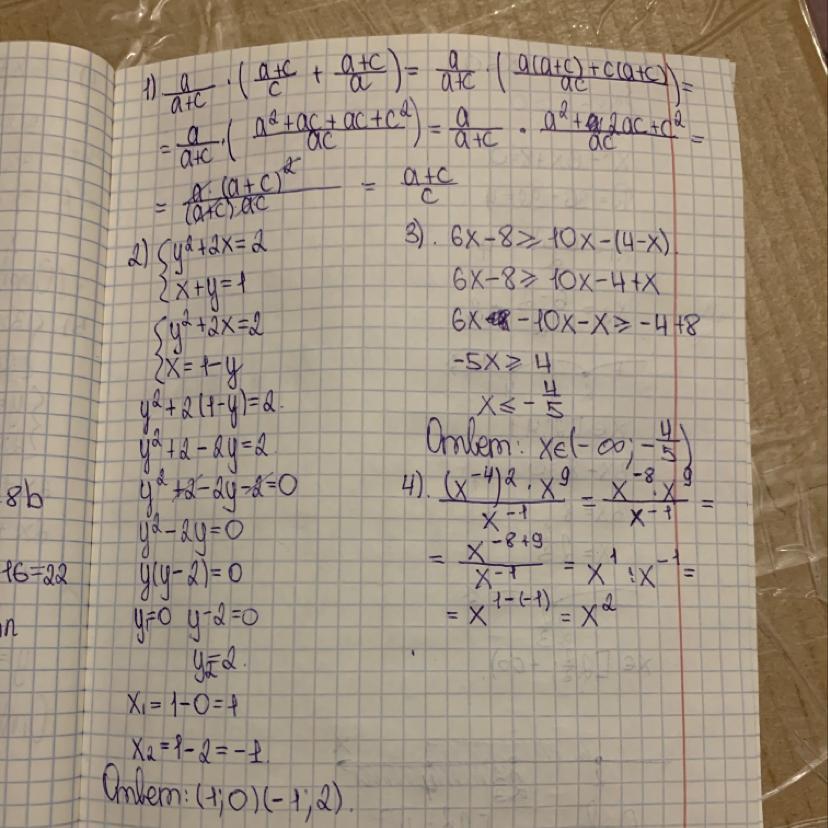 1) a/(a+c) · ((a+c)/c + (a+c)/a) = a/(a+c) · ((a(a+c)+c(a+c))/ac) =
= a/(a+c) · ((a²+ac+ac+c²)/ac) = a/(a+c) · (a²+2ac+c²)/ac =
= (a·(a+c)²)/((a+c)ac) = (a+c)/c
2) {y²+2x=2
{x+y=1
{y²+2x=2
{x=1-y
y²+2(1-y)=2.
y²+2-2y=2
y²+2-2y-2=0
y²-2y=0
y(y-2)=0
y₁=0 y-2=0
y₂=2.
x₁=1-0=1
x₂=1-2=-1.
Ответ: (1;0)(-1;2).
3). 6x-8⩾10x-(4-x)
6x-8⩾10x-4+x
6x-10x-x⩾-4+8
-5x⩾4
x⩽-4/5
Ответ: x∈(-∞;-4/5)
4). ((x⁻⁴)²·x⁹)/x⁻¹ = (x⁻⁸·x⁹)/x⁻¹ =
= x⁻⁸⁺⁹/x⁻¹ = x¹:x⁻¹=
= x¹⁻⁽⁻¹⁾ = x²
8b
16=22